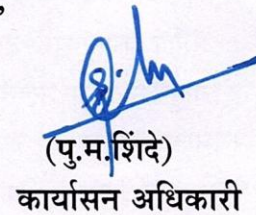 (पु.म.शिंदे)
कार्यासन अधिकारी